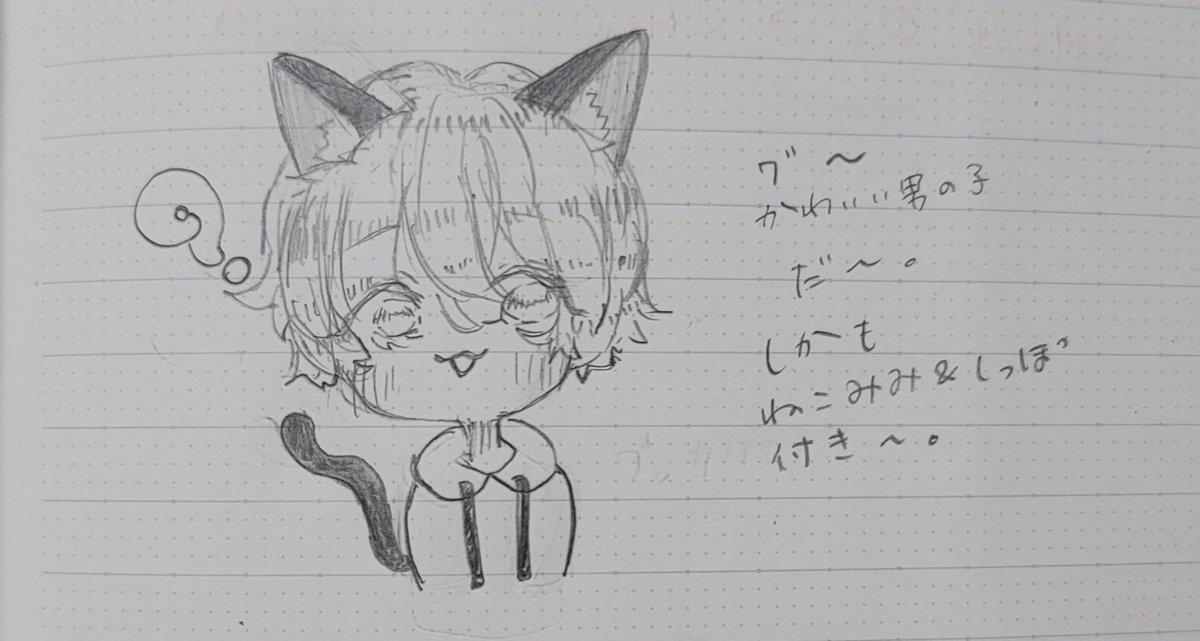 グ〜
かわいい男の子
だ〜。
しかも
ねこみみ&しっぽ
付き〜。